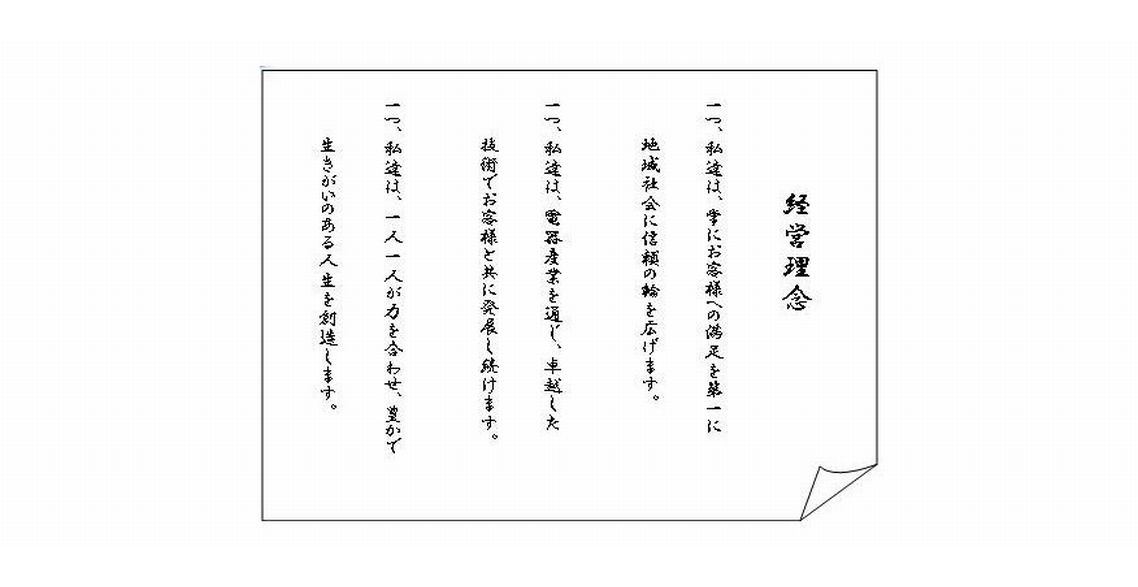 経営理念
一つ、私達は、常にお客様への満足を第一に
地域社会に信頼の輪を広げます。
一つ、私達は、電器産業を通じ、卓越した
技術でお客様と共に発展し続けます。
一つ、私達は、一人一人が力を合わせ、豊かで
生きがいのある人生を創造します。